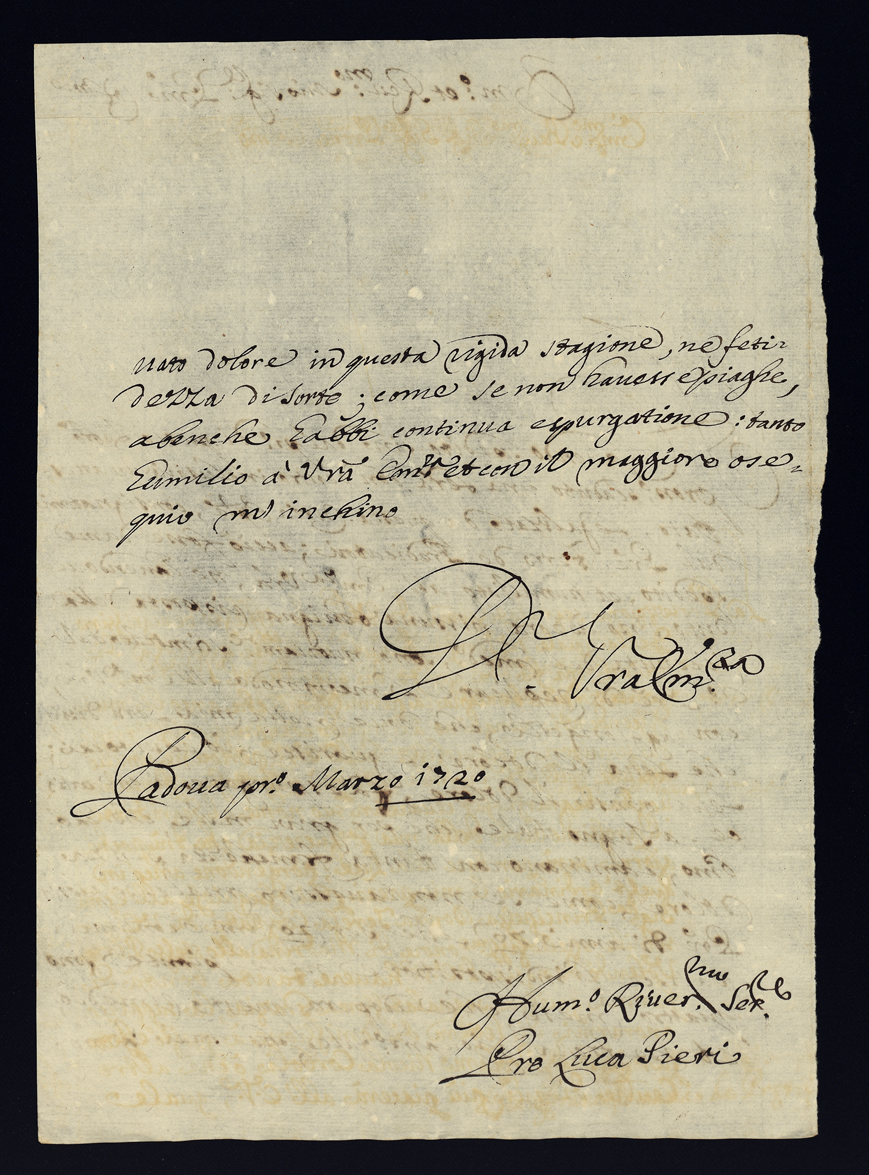 uato dolore in questa rigida stagione, ne feti-
dezza di sorte; come se non havesse piaghe,
abenche habbi continua espurgatione: tanto
humilio à Vrã Emza et con il maggiore ose-
quio m' inchino
D. V. Vra Emza
Padoua pro Marzo 1720
Humo River.mo Ser.e
Pro Luca Pieri